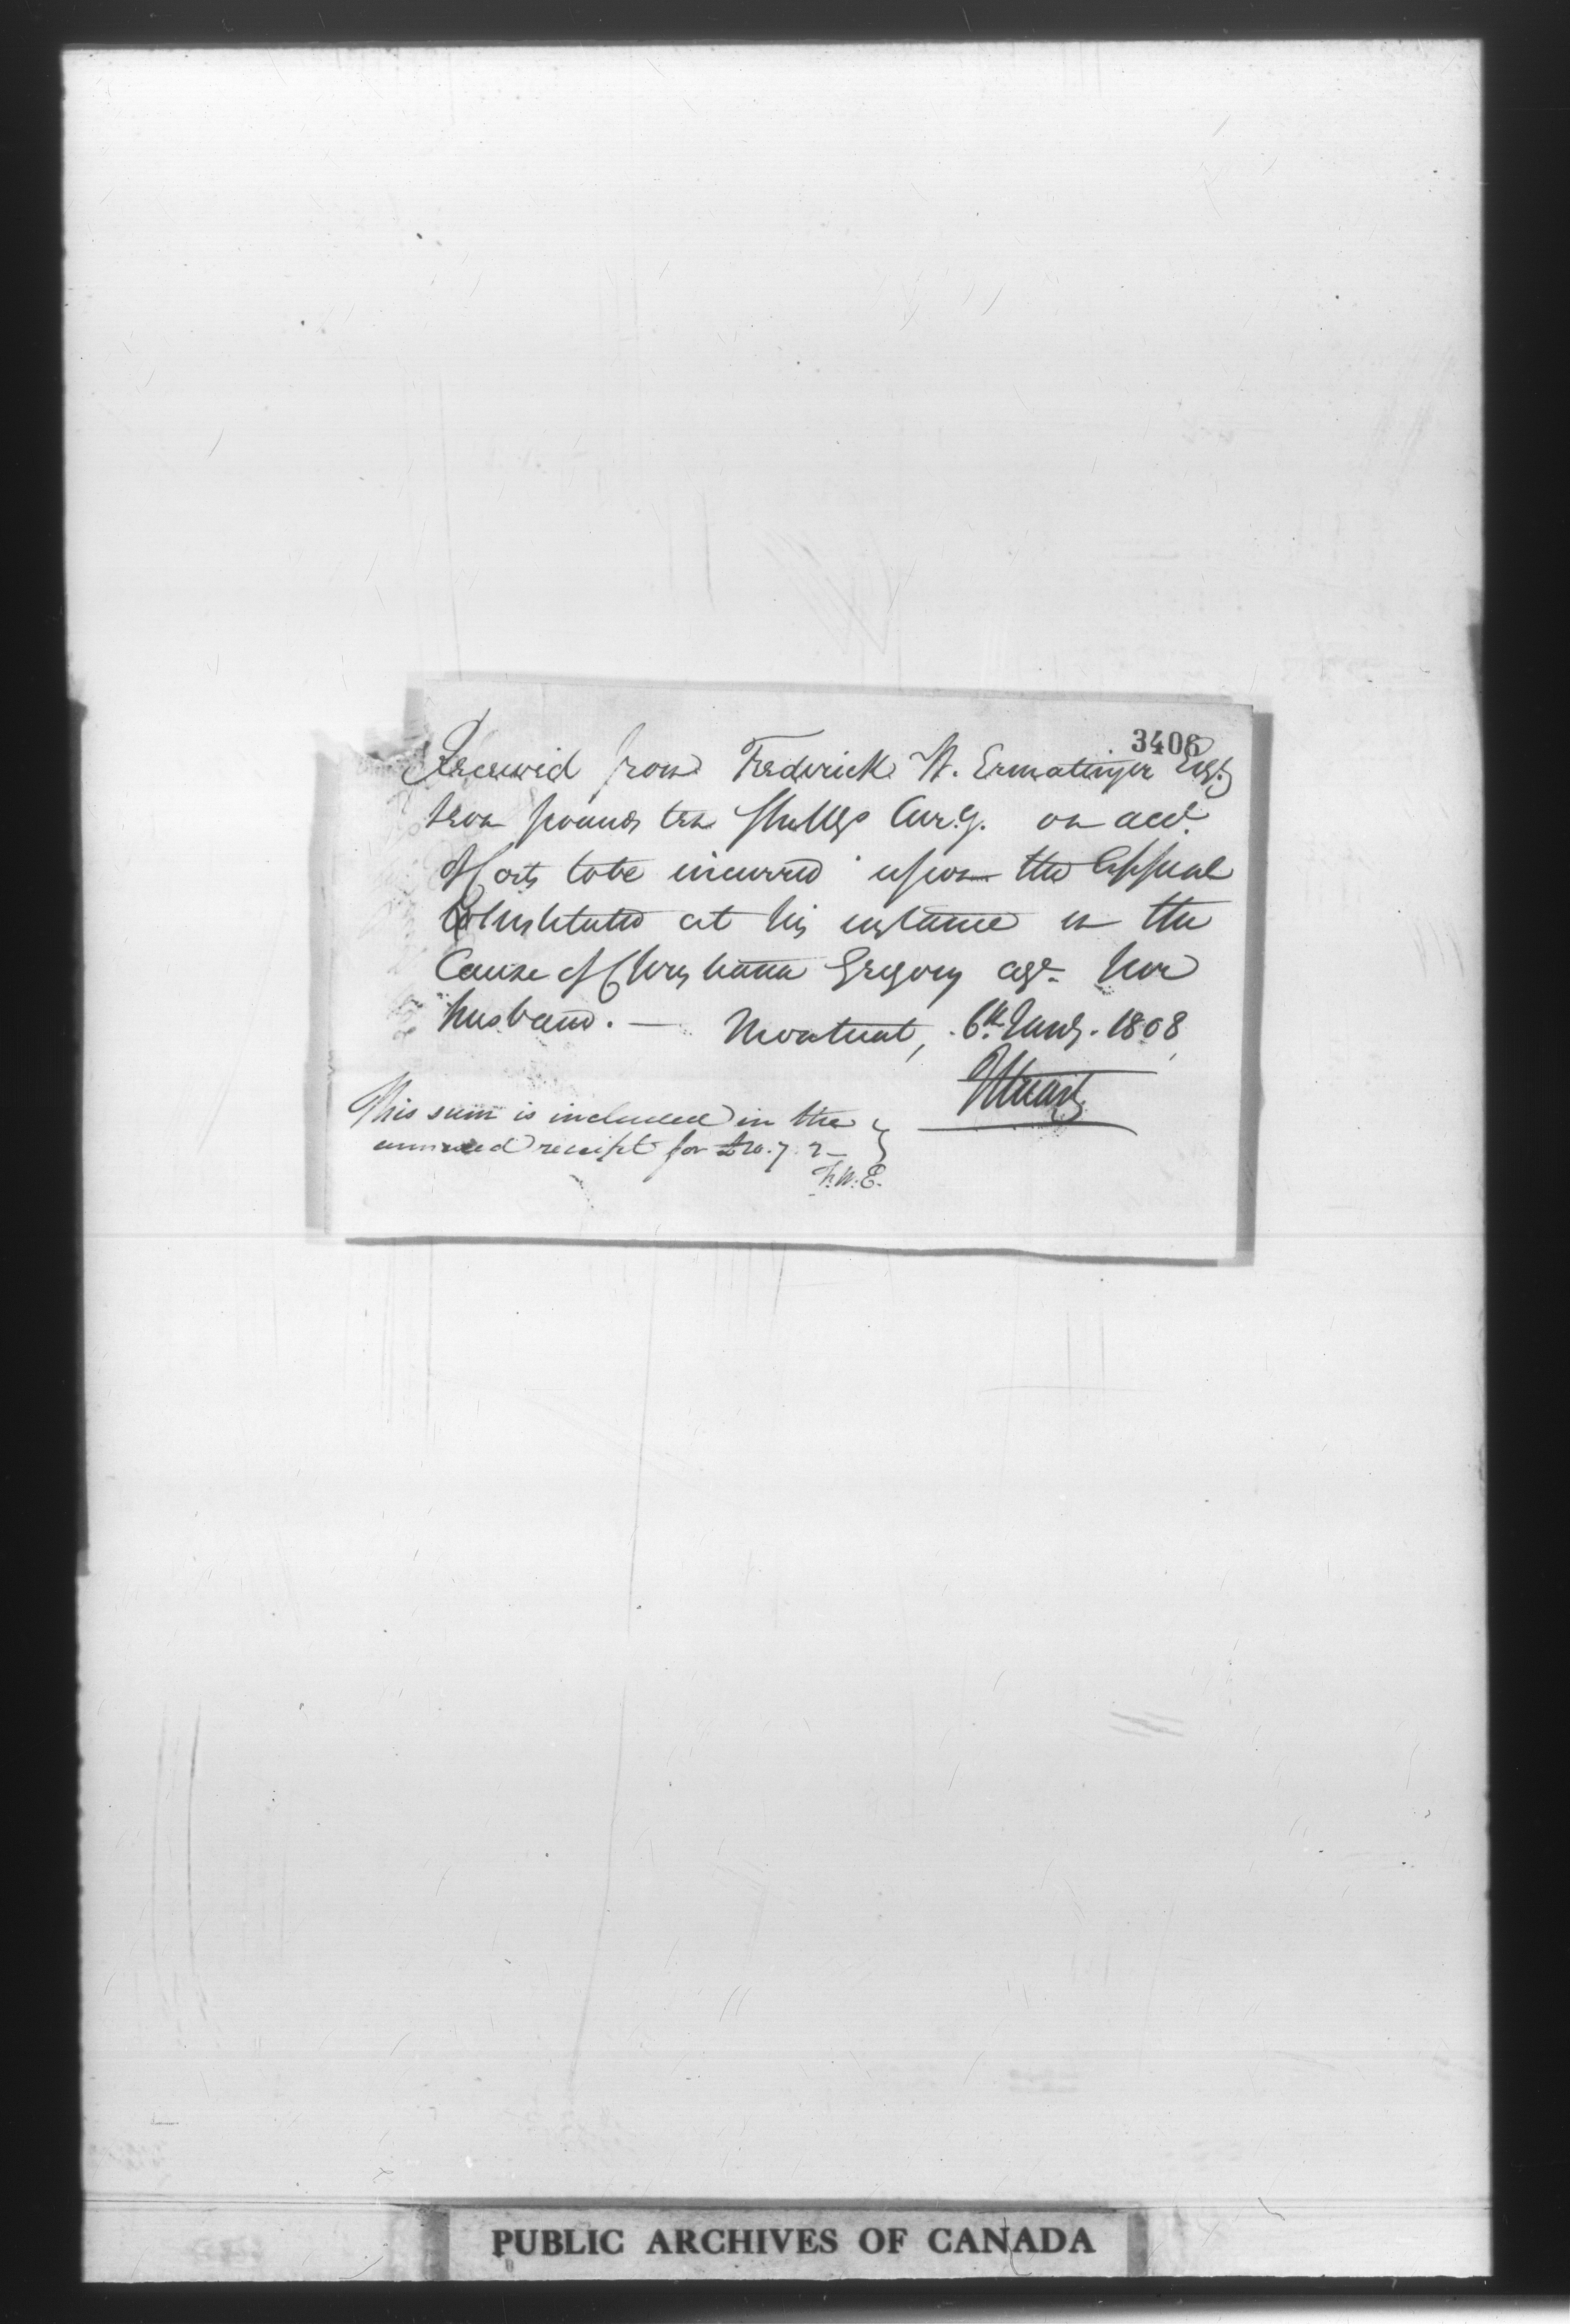 3406
Received from Frederick W. Ermatinger Esqr.
pounds ten Shillgs Cur.y. on acct.
of Costs to be incurred upon the Appeal
to be instituted at his instance in the
Cause of Christiana Gregory agt. her
husband. — Montreal, 6th. Jany. 1808
J Stuart
This sum is included in the
annexed receipt for
F.W.E.
PUBLIC ARCHIVES OF CANADA